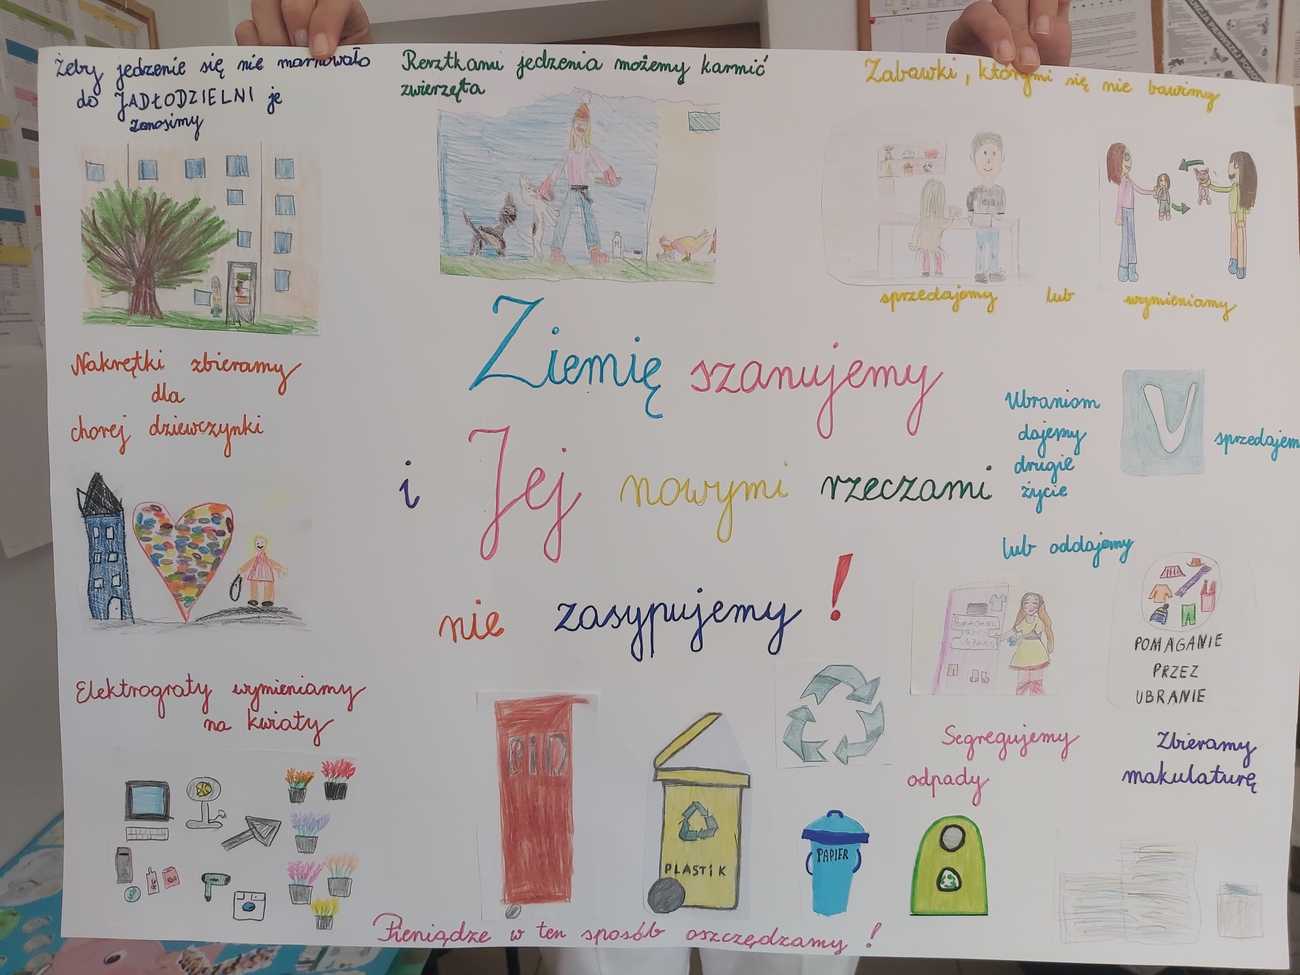 Żeby jedzenie się nie marnowało
do JADŁODZIELNI je
zanosimy
Resztkami jedzenia możemy karmić
zwierzęta
Zabawki, którymi się nie bawimy
sprzedajemy lub wymieniamy
Nakrętki zbieramy
dla
chorej dziewczynki
Ziemię szanujemy
i Jej nowymi rzeczami
nie zasypujemy!
Ubraniom
dajemy
drugie
życie
V
sprzedajem
lub oddajemy
POMAGANIE
PRZEZ
UBRANIE
Elektrograty wymieniamy
na kwiaty
Segregujemy
odpady
Zbieramy
makulaturę
BIO
PLASTIK
PAPIER
Pieniądze w ten sposób oszczędzamy!